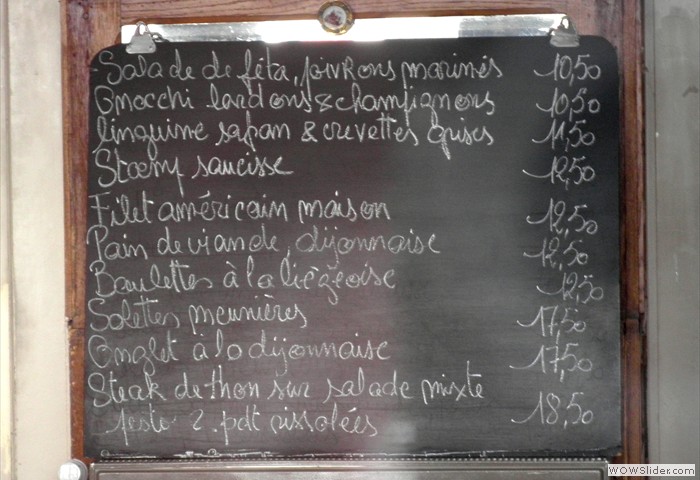 Salade de féta, poivrons marinés 10,50
Gnocchi lardons & champignons 10,50
linguine safran & crevettes grises 11,50
Stoemp saucisse 12,50
Filet américain maison 12,50
Pain de viande, dijonnaise 12,50
Boulettes à la liégeoise 12,50
Solettes meunières 17,50
Onglet à la dijonnaise 17,50
Steak de thon sur salade mixte
pesto & pdt rissolées 18,50
WOWSlider.com